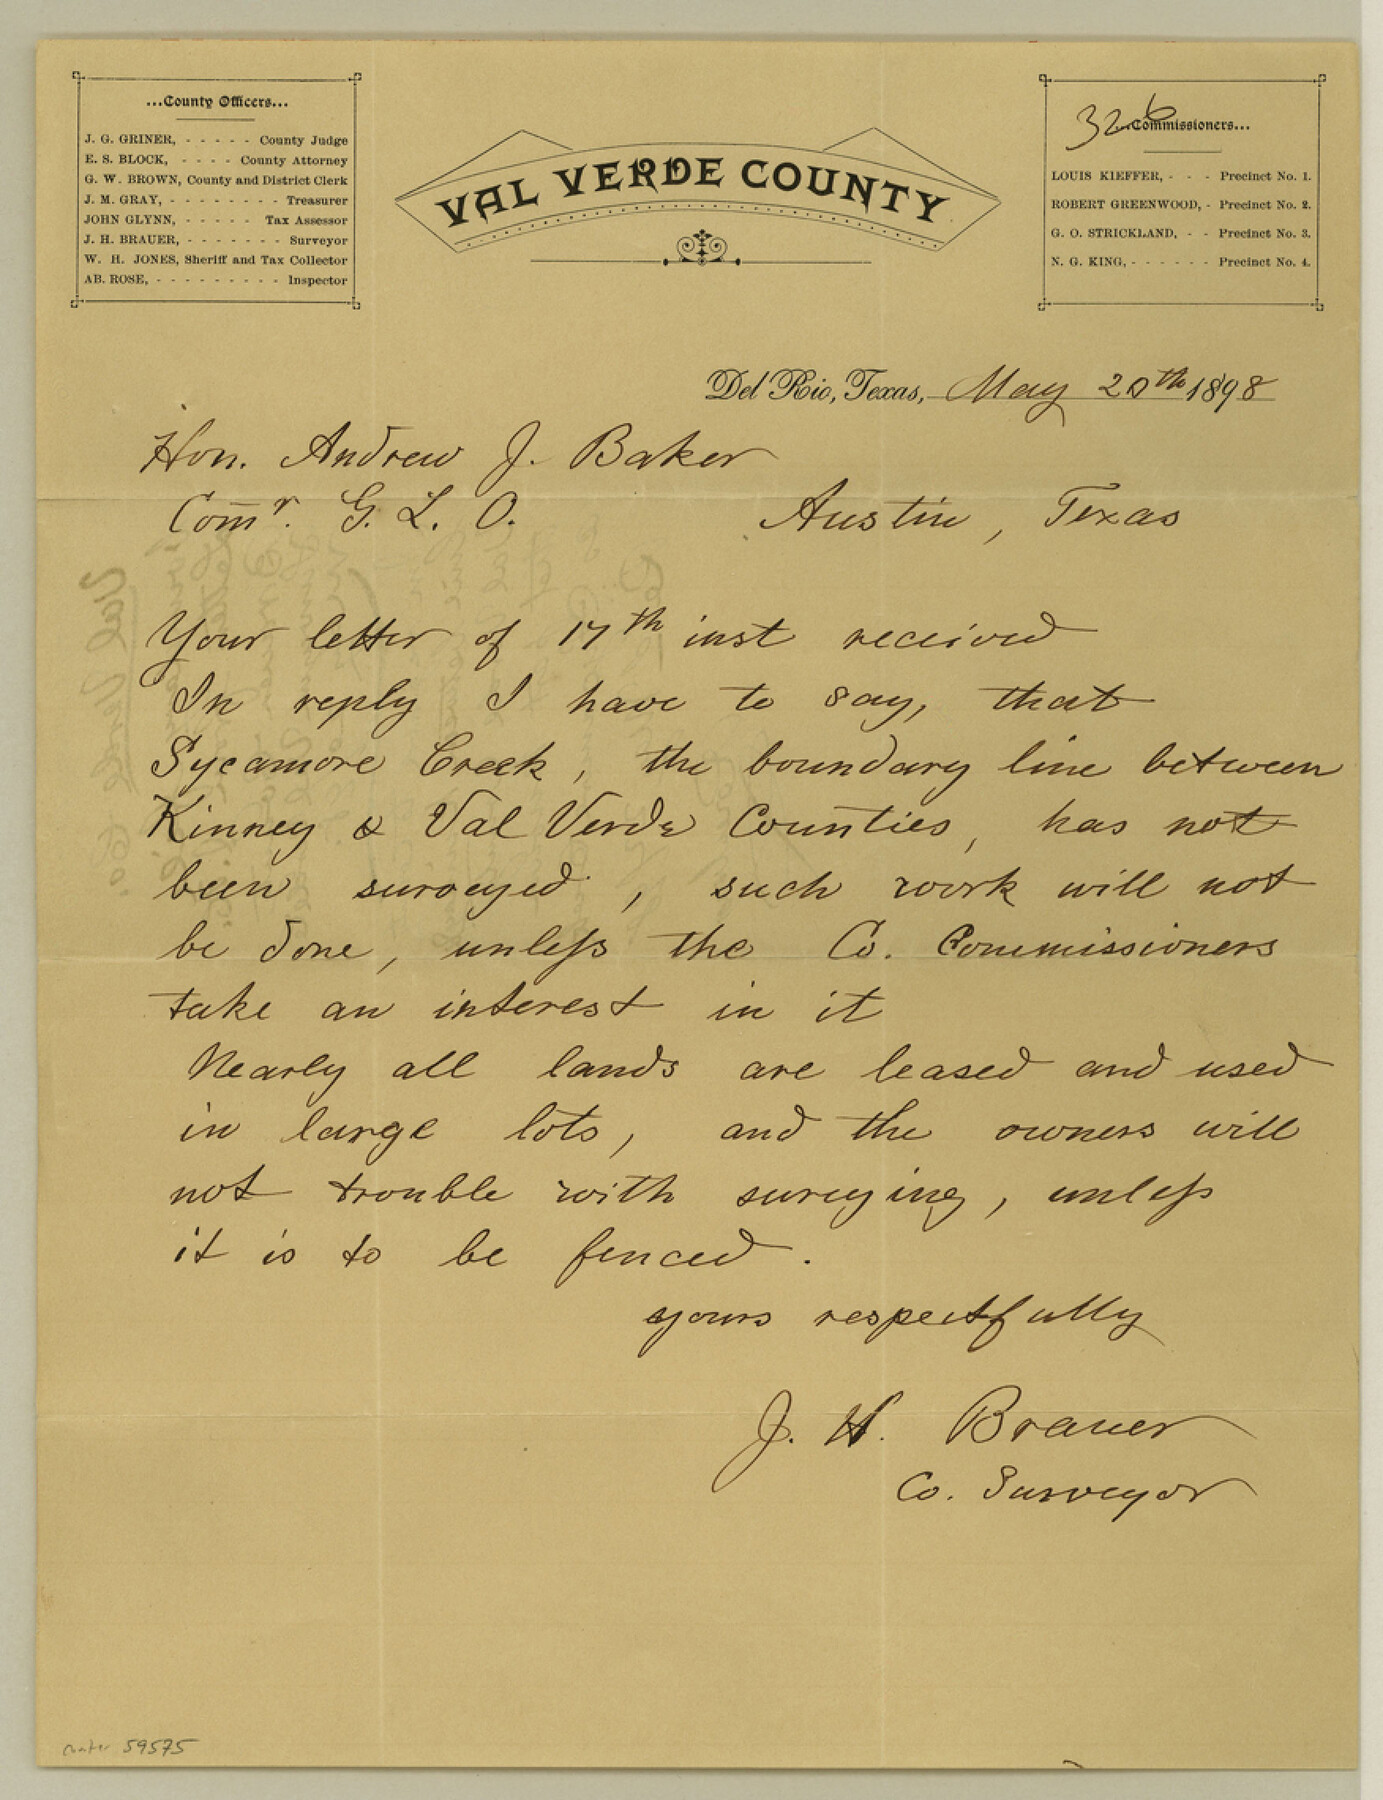 ...County Officers...
J. G. GRINER, - - - - - County Judge
E. S. BLOCK, - - - - County Attorney
G. W. BROWN, County and District Clerk
J. M. GRAY, - - - - - - - - Treasurer
JOHN GLYNN, - - - - - Tax Assessor
J. H. BRAUER, - - - - - - - Surveyor
W. H. JONES, Sheriff and Tax Collector
AB. ROSE, - - - - - - - - - Inspector
VAL VERDE COUNTY
326
...Commissioners...
LOUIS KIEFFER, - - - Precinct No. 1.
ROBERT GREENWOOD, - Precinct No. 2.
G. O. STRICKLAND, - - Precinct No. 3.
N. G. KING, - - - - - - Precinct No. 4.
Del Rio, Texas, May 20th 1898
Hon. Andrew J. Baker
Comr. G. L. O. Austin, Texas
Your letter of 17th inst received
In reply I have to say, that
Sycamore Creek, the boundary line between
Kinney & Val Verde Counties, has not
been surveyed, such work will not
be done, unless the Co. Commissioners
take an interest in it
Nearly all lands are leased and used
in large lots, and the owners will
not trouble with surveying, unless
it is to be fenced.
yours respectfully
J. H. Brauer
Co. Surveyor
59575